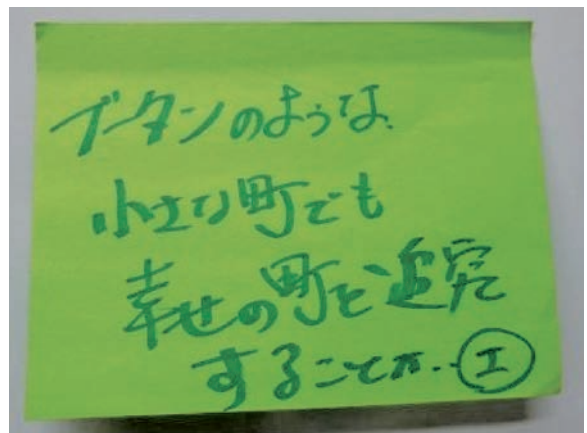 ブータンのような、
小さな町でも
幸せの町を追究
することが‥Ⓘ